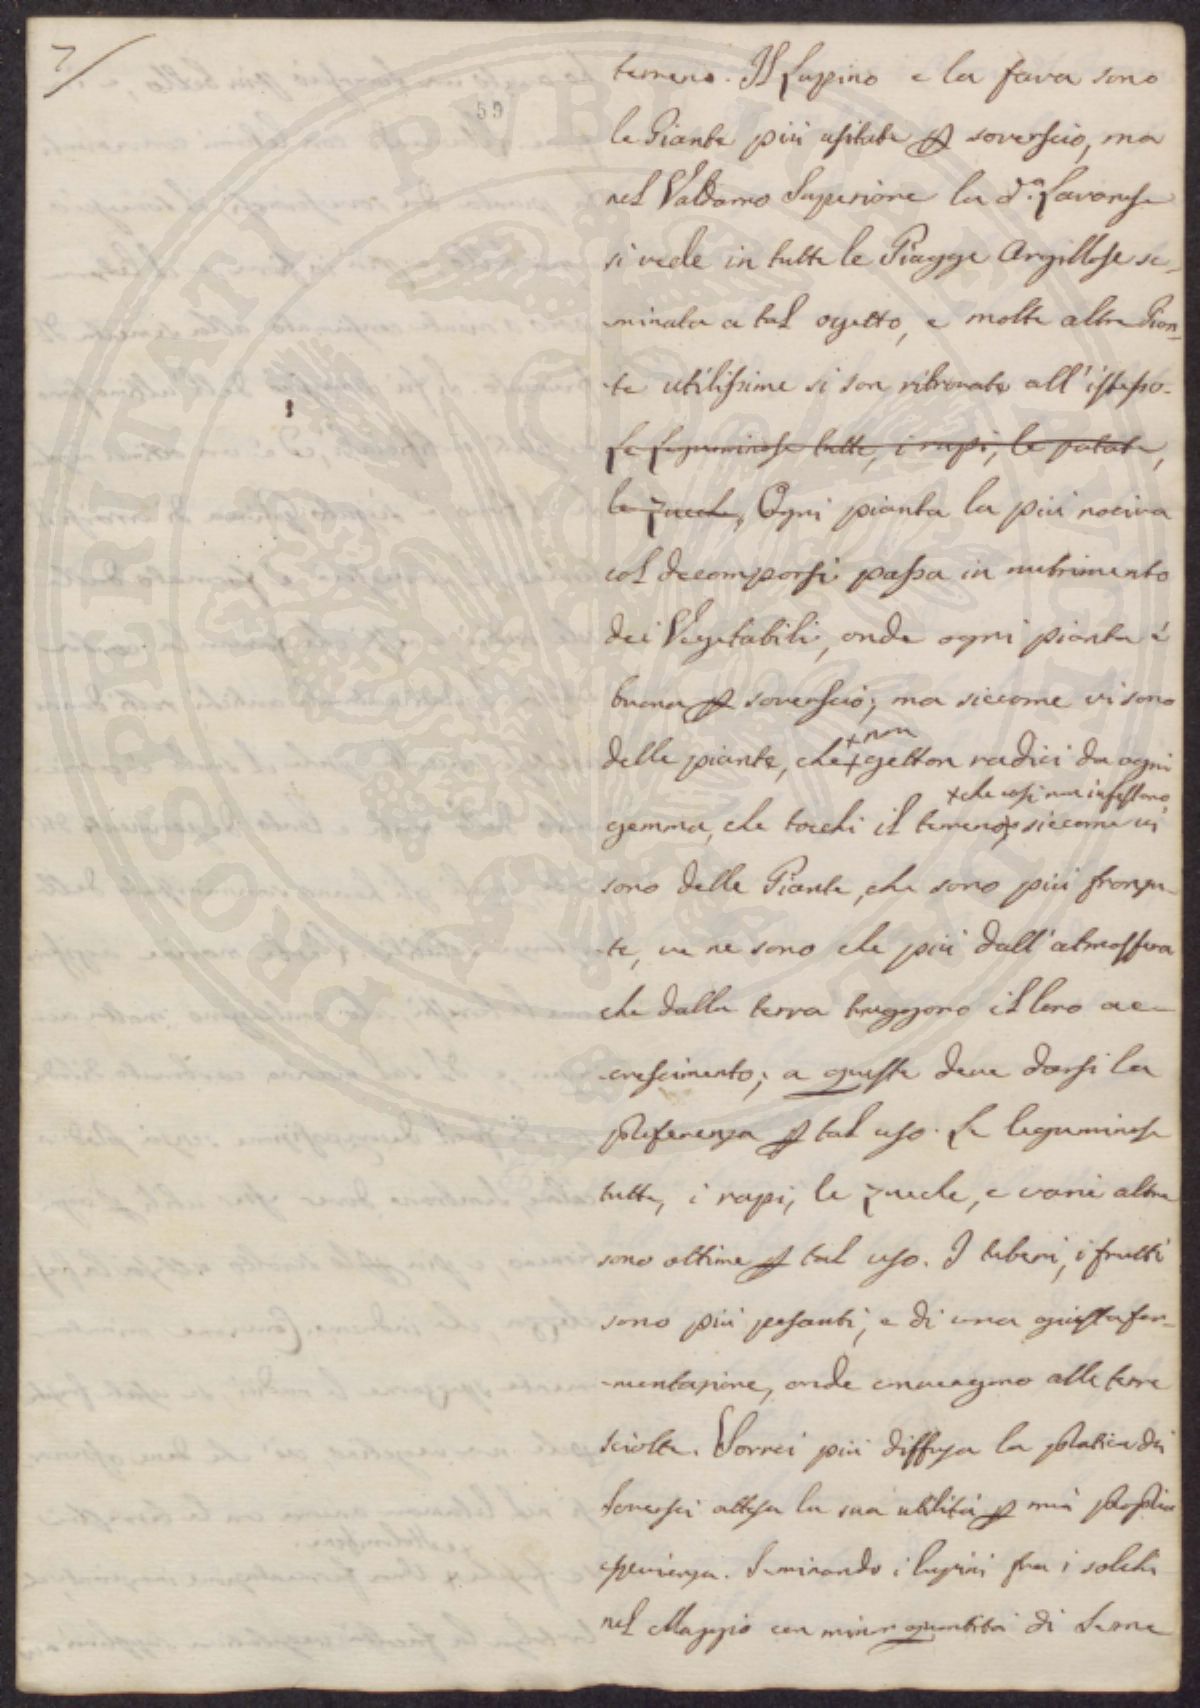 7/
59
terreno. Il Lupino e la fava sono
le Piante più usitate p soverscio, ma
nel Valdarno Superiore la d.a Lavanese
si vede in tutte le Piagge Argillose se-
-minata a tal ogetto, e molte altre Pian-
-te utilissime si son ritrovate all'istesso.
Le Leguminose tutte, i rapi, le patate,
le Zucche, Ogni pianta la più nociva
col decomporsi passa in nutrimento
dei Vegetabili, onde ogni pianta è
buona p soverscio; ma siccome vi sono
+non
delle piante, che + getton radici da ogni
+che così non infestono
gemma, che tocchi il terreno, siccome vi
sono delle Piante, che sono più fronzu-
-te, ve ne sono che più dall'atmosfera
che dalla terra traggono il loro ac-
-crescimento; a queste deve darsi la
preferenza p tal uso. Le leguminose
tutte, i rapi, le zucche, e varie altre
sono ottime p tal uso. I tuberi, i frutti
sono più pesanti, e di una giusta fer-
-mentazione, onde convengono alle terre
sciolte. Vorrei più diffusa la pratica dei
Soversci attesa la sua utilità p mia propria
esperienza. Seminando i lupini fra i solchi
nel Maggio con minor quantità di Seme